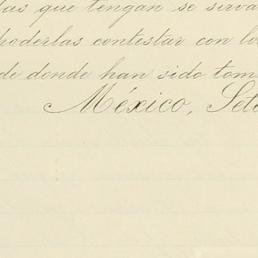 las que tengan se sirva
poderlas contestar con lo
de donde han sido tom
México, Set